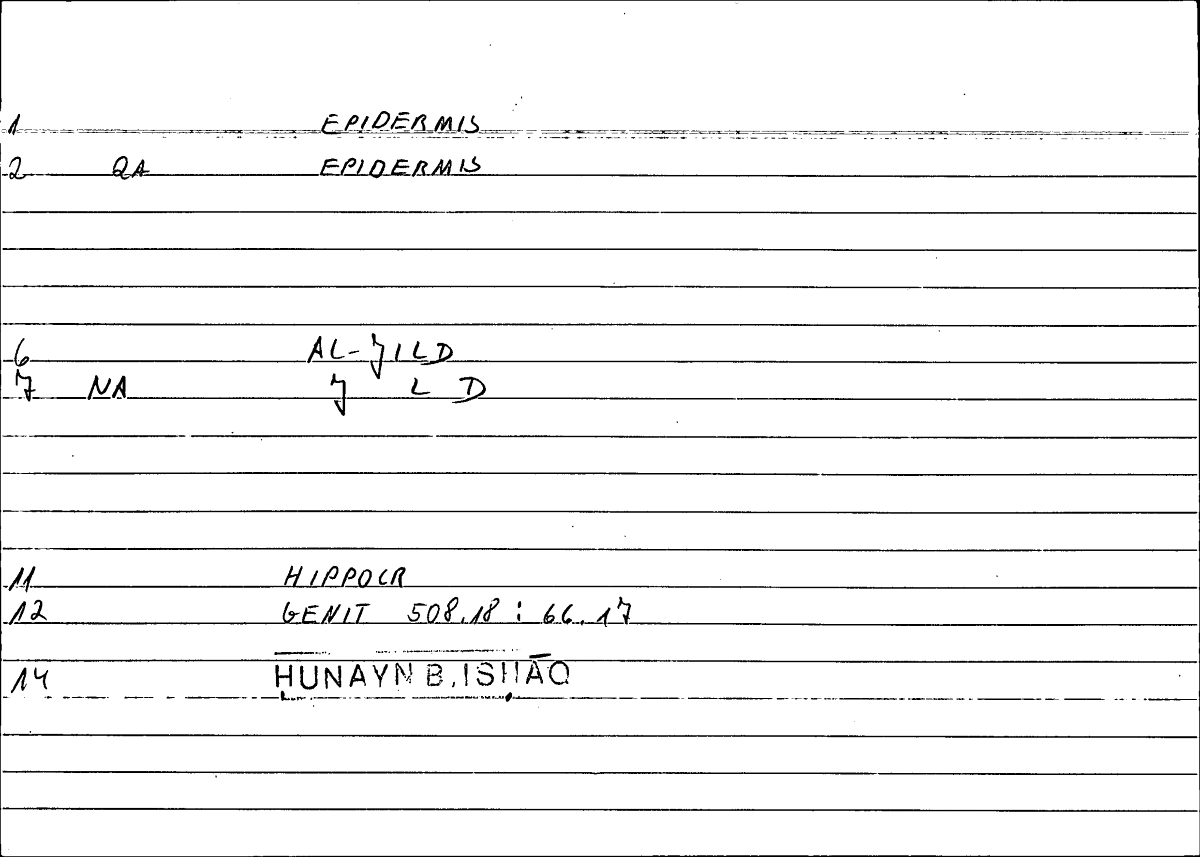 1 EPIDERMIS
2 QA EPIDERMIS
6 AL-JILD
7 NA J L D
11 HIPPOCR
12 GENIT 508.18 : 66.17
14 ḤUNAYN B. ISḤĀQ